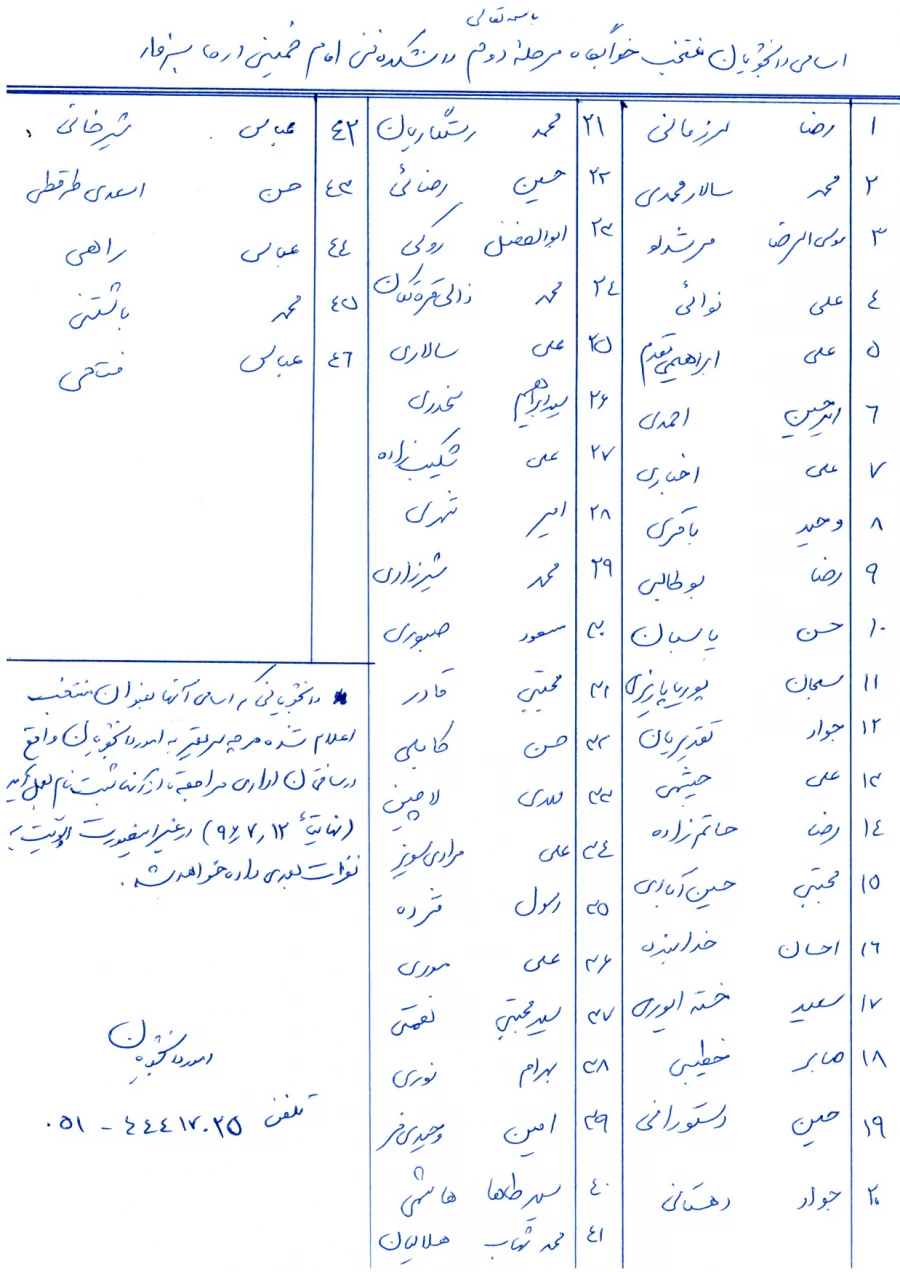 باسمه تعالی
اسامی دانشجویان منتخب خوابگاه مرحله دوم دانشکده فنی امام خمینی (ره) سبزوار
۱ رضا مرزمانی
۲ محمد سالارمحمدی
۳ موسی الرضا مرشدلو
٤ علی نوائی
۵ علی ابراهیمی مقدم
۶ امیرحسین احمدی
۷ علی اخباری
۸ وحید باقری
۹ رضا بوطالبی
۱۰ حسن پاسبان
۱۱ سبحان
۱۲ جواد تقدیریان
۱۳ علی حبیشی
۱٤ رضا حاتم زاده
۱۵ مجتبی حسین آبادی
۱۶ احسان خدابنده
۱۷ سعید خسته ایوری
۱۸ صابر خطیبی
۱۹ حسین دستورانی
۲۰ جواد دهستانی
۲۱ محمد رستگاریان
۲۲ حسین رضائی
۲۳ ابوالفضل روکی
۲٤ محمد
۲۵ علی سالاری
۲۶ سیدابراهیم
۲۷ علی شکیب زاده
۲۸ امیر شهری
۲۹ محمد شیرزادی
۳۰ مسعود صبوری
۳۱ مجتبی قادر
۳۲ حسن کاملی
۳۳ مهدی لاچین
۳٤ علی مرادی
۳۵ رسول
۳۶ علی موری
۳۷ سیدمجتبی نعمتی
۳۸ بهرام نوری
۳۹ امین وحیدی فر
٤۰ سید طاها هاشمی
٤۱ محمد شهاب هلالیان
٤۲ عباس شیرخانی
٤۳ حسن اسعدی طرقطی
٤٤ عباس راهی
٤۵ محمد باشتنی
٤۶ عباس فتاحی
* دانشجویانی که اسامی آنها بعنوان منتخب
اعلام شده هر چه سریعتر به امور دانشجویان واقع
در ساختمان اداری مراجعه تا از آنها ثبت نام بعمل آید
(نهایتاً ۹۶,۷,۱۲) در غیر اینصورت اولویت به
نفرات بعدی داده خواهد شد.
امور دانشجویان
تلفن ۰۵۱ - ٤٤٤۱۷۰۲۵